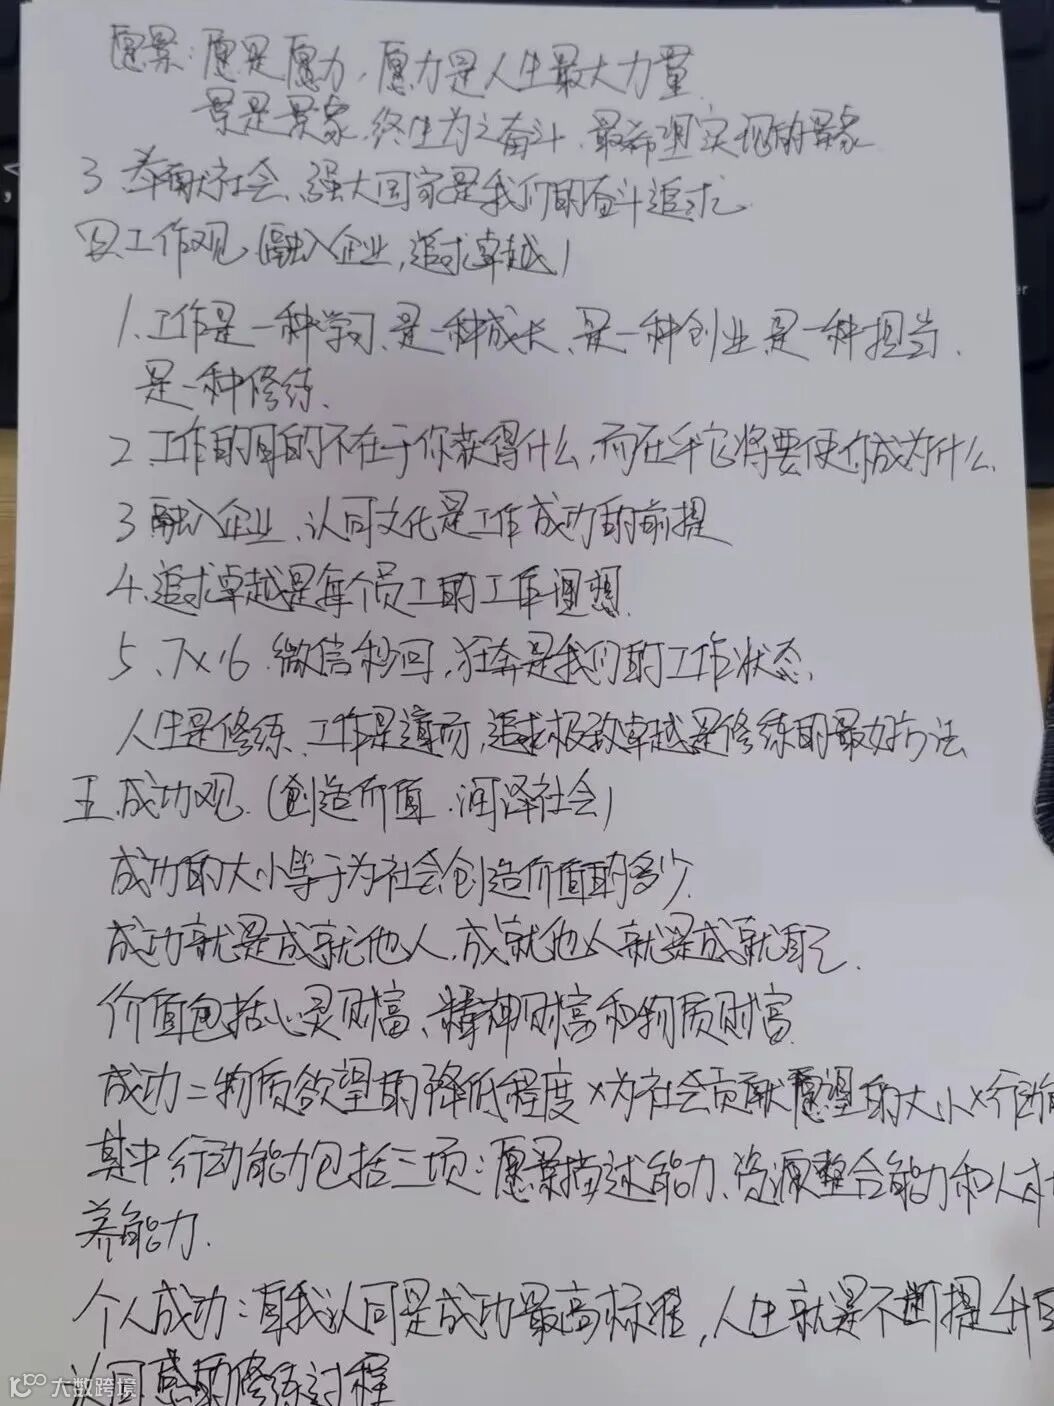 愿景:愿是愿力,愿力是人生最大力量.
景是景象,终生为之奋斗、最希望实现的景象
3.奉献社会、强大国家是我们的奋斗追求
四、工作观、(融入企业,追求卓越)
1、工作是一种学习、是一种成长、是一种创业、是一种担当、
是一种修练、
2、工作的目的不在于你获得什么,而在乎它将要使你成为什么、
3 融入企业、认同文化是工作成功的前提
4、追求卓越是每个员工的工作理想
5、7×16 微信秒回,狂奔是我们的工作状态、
人生是修练、工作是道场,追求极致卓越是修练的最好方法
五、成功观、(创造价值、润泽社会)
成功的大小等于为社会创造价值的多少.
成功就是成就他人,成就他人就是成就自己.
价值包括心灵财富、精神财富和物质财富.
成功=物质欲望的降低程度×为社会贡献愿望的大小×行动
其中行动能力包括三项:愿景描述能力、资源整合能力和人才
养能力.
个人成功:自我认同是成功最高标准,人生就是不断提升自
认同感的修练过程
大数跨境